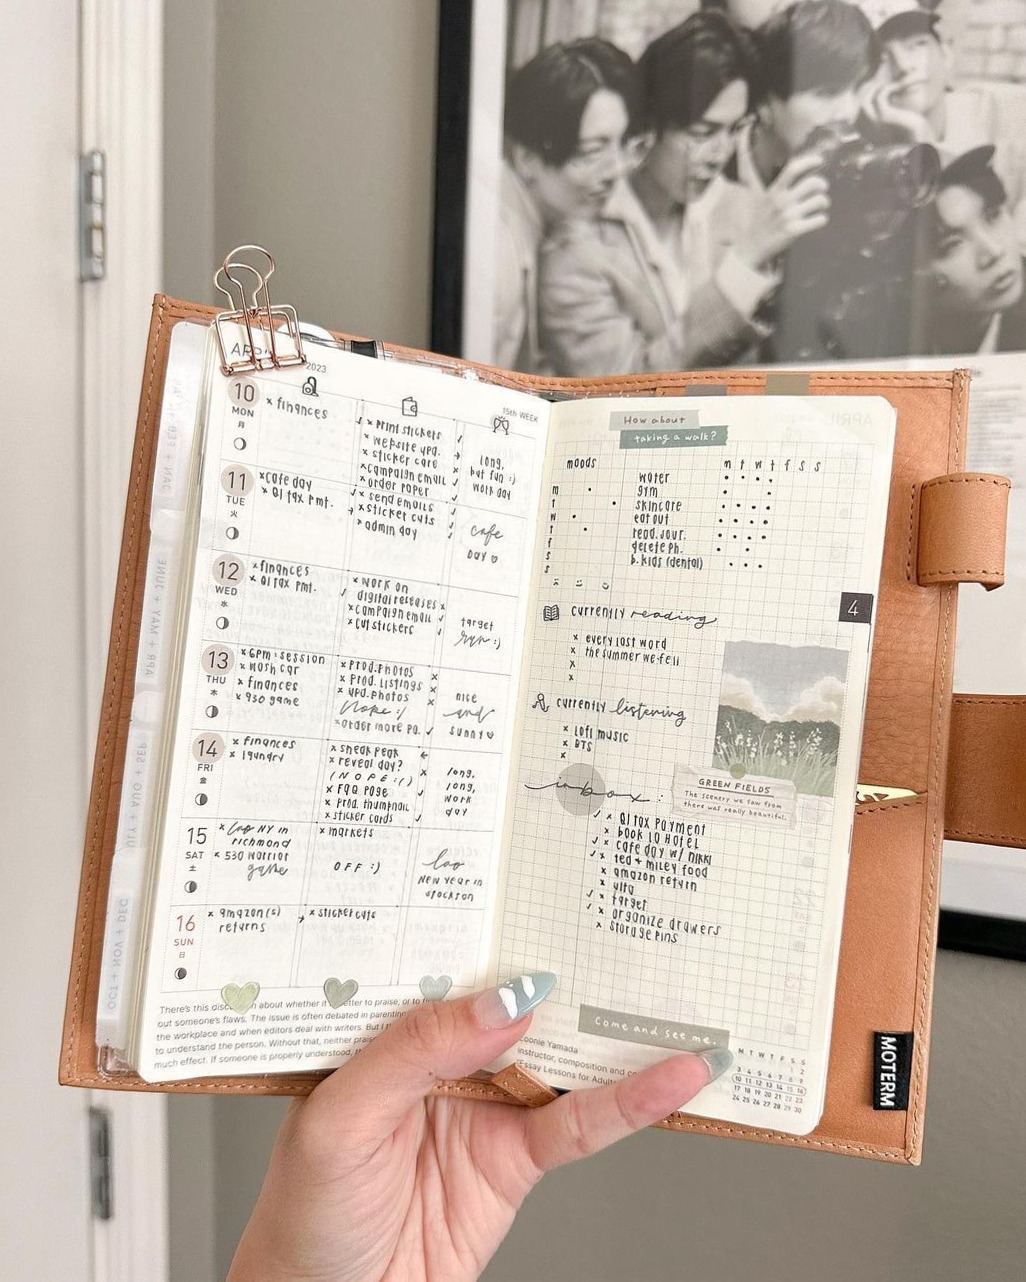 2023
15th WEEK
10
MON
月
x finances
x print stickets
x website upd.
x sticker care
x campaign email
x order paper
long,
but fun :)
work day
11
TUE
火
x cafe day
x Q1 tax pmt.
x send emails
x sticker cuts
x admin day
cafe
DAY
12
WED
水
x finances
x Q1 tax pmt.
x work on
digital releases
x campaign email
x cut stickers
target
run :)
13
THU
木
x 6pm: session
x wash car
x finances
x 930 game
x prod. photos
x prod. listings
x upd. photos
nope :/
x order more pa.
nice
and
sunny
14
FRI
金
x finances
x laundry
x sneak peak
x reveal day?
(NOPE :()
x FAQ page
x prod. thumbnail
x sticker cards
long,
long,
work
day
15
SAT
土
x Lao NY in
richmond
x 530 warrior
game
x markets
OFF :)
lao
NEW YEAR IN
STOCKTON
16
SUN
日
x amazon(s)
returns
x sticker cuts
There's this about whether it etter to praise, or to
out someone's flaws. The issue is often debated in parenting
the workplace and when editors deal with writers. But I
to understand the person. Without that, neither
much effect. If someone is properly understood,
How about
taking a walk?
moods
m
t
w
t
f
s
s
m t w t f s s
water
gym
skincare
eat out
read. jour.
delete ph.
b. kids (dental)
4
currently reading
x every last word
x the summer we fell
x
x
currently listening
x lofi music
x BTS
x
GREEN FIELDS
The scenery we saw from
there was really beautiful.
inbox :
✓ x Q1 tax payment
x book 10 hotel
✓ x cafe day w/ nikki
✓ x ted + miley food
x amazon return
x ulta
✓ x target
✓ x organize drawers
x storage bins
Come and see me.
Yamada
instructor, composition and
Essay Lessons for Adult
M T W T F S S
1 2
3 4 5 6 7 8 9
10 11 12 13 14 15 16
17 18 19 20 21 22 23
24 25 26 27 28 29 30
MOTERM
JAN + FEB
APR + MAY + JUNE
JULY + AUG + SEP
OCT + NOV + DEC